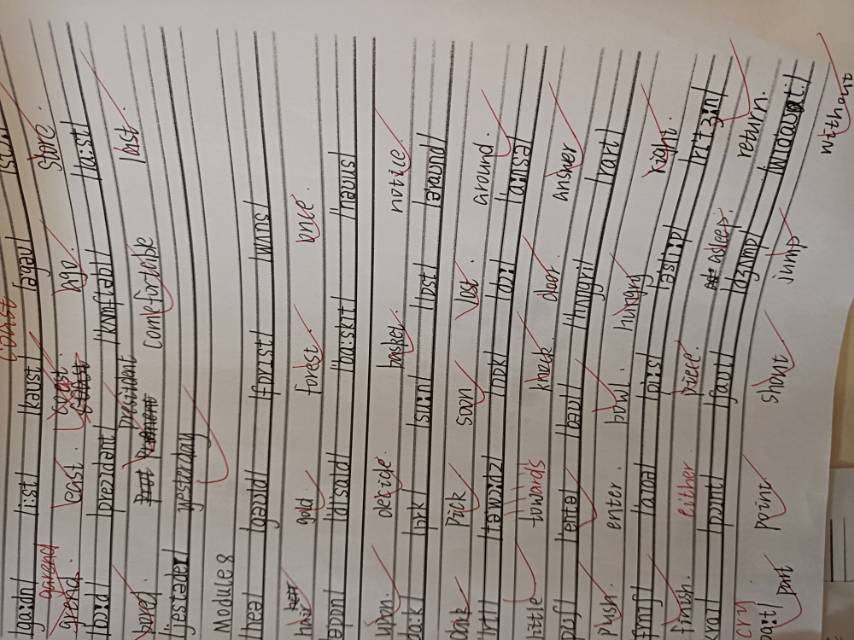 /iːst/ /kəʊst/ /əˈgəʊ/
east. coast. age. store.
/ˈprezɪdənt/ /ˈkʌmftəbl/ /lɑːst/
president comfortable last.
/ˈjestədeɪ/
yesterday
Module 8
/heə/ /gəʊld/ /ˈfɒrɪst/ /wʌns/
hair gold forest. once.
/əˈpɒn/ /dɪˈsaɪd/ /ˈbɑːskɪt/ /ˈnəʊtɪs/
upon. decide. basket notice.
/pɪk/ /suːn/ /lɒst/ /əˈraʊnd/
pick soon lost. around.
/ˈlɪtl/ /təˈwɔːdz/ /nɒk/ /dɔː/ /ˈɑːnsə/
little towards knock door answer
/pʊʃ/ /ˈentə/ /bəʊl/ /ˈhʌŋgri/ /raɪt/
push. enter. bowl. hungry right.
/ˈfɪnɪʃ/ /ˈaɪðə/ /piːs/ /əˈsliːp/ /rɪˈtɜːn/
finish. either piece. asleep. return.
/pɔɪnt/ /ʃaʊt/ /dʒʌmp/ /wɪðˈaʊt/
cry part point shout jump without